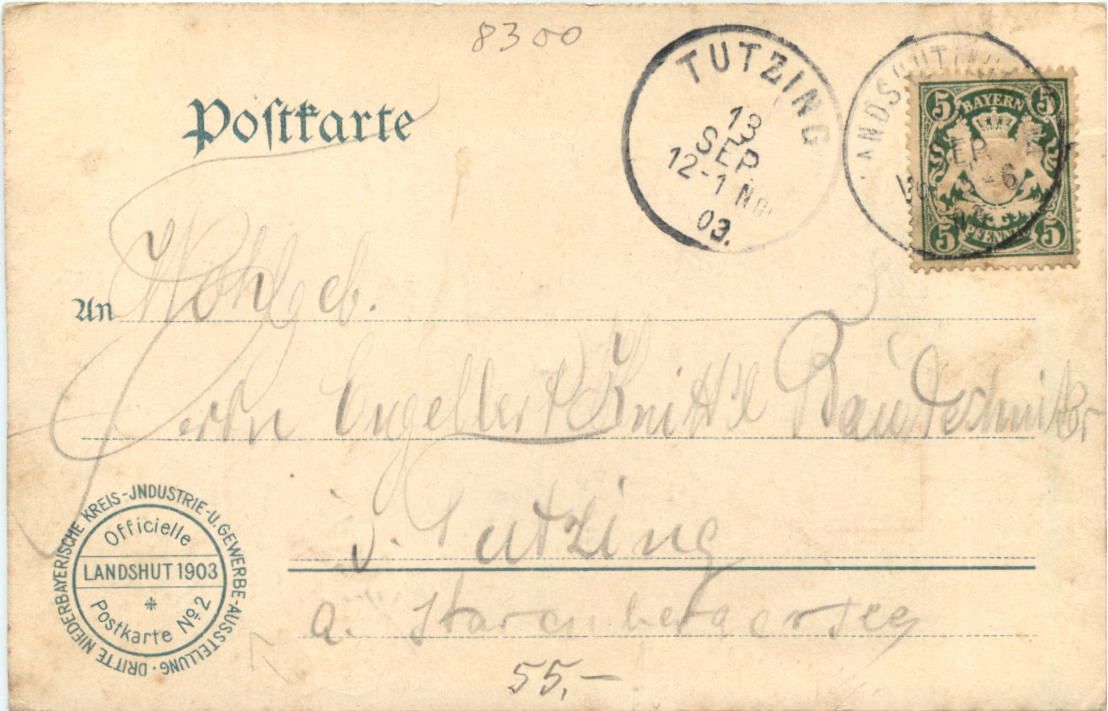 8300
Postkarte
TUTZING
13
SEP
12-1 Nm
03.
LANDSHUT
SEP
BAYERN
5 5
5 PFENNIG 5
An Wohlgeb.
Herrn Engelbert Knittl Bautechniker
i. Tutzing
a. Starenbergersee
DRITTE NIEDERBAYERISCHE KREIS-JNDUSTRIE-U. GEWERBE-AUSSTELLUNG
Officielle
LANDSHUT 1903
*
Postkarte No. 2
55,-